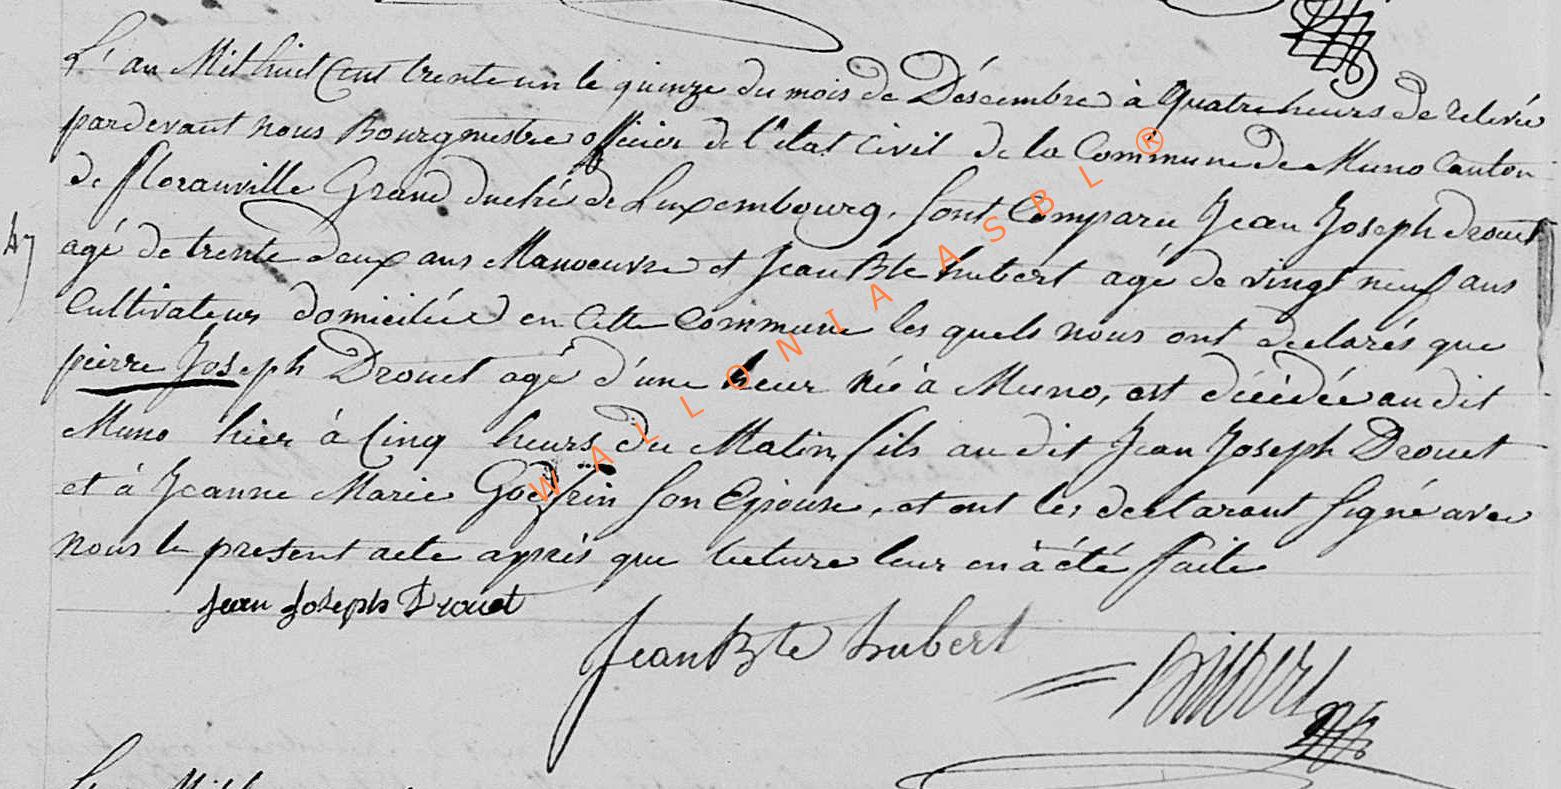 L'an Mil huit Cent trente un le quinze du mois de Désembre à Quatre heurs de relevée
pardevant nous Bourgmestre officier de l'état Civil de la Commune de Muno Canton
de floranville Grand duché de Luxembourg, sont Comparu Jean Joseph drouet
47
agé de trente deux ans Manoeuvre et Jean Bte hubert agé de vingt neuf ans
Cultivateur domiciliée en Cette Commune les quels nous ont declarés que
pierre Joseph Drouet agé d'une heur née à Muno, est décédée au dit
Muno hier à Cinq heurs du Matin, fils au dit Jean Joseph Drouet
et à Jeanne Marie son Epouse, et ont les declarant signé avec
nous le present acte après que lecture leur en à été faite
Jean Joseph Drouet
Jean Bte hubert
L'an Mil
WALLONIA ASBL ®